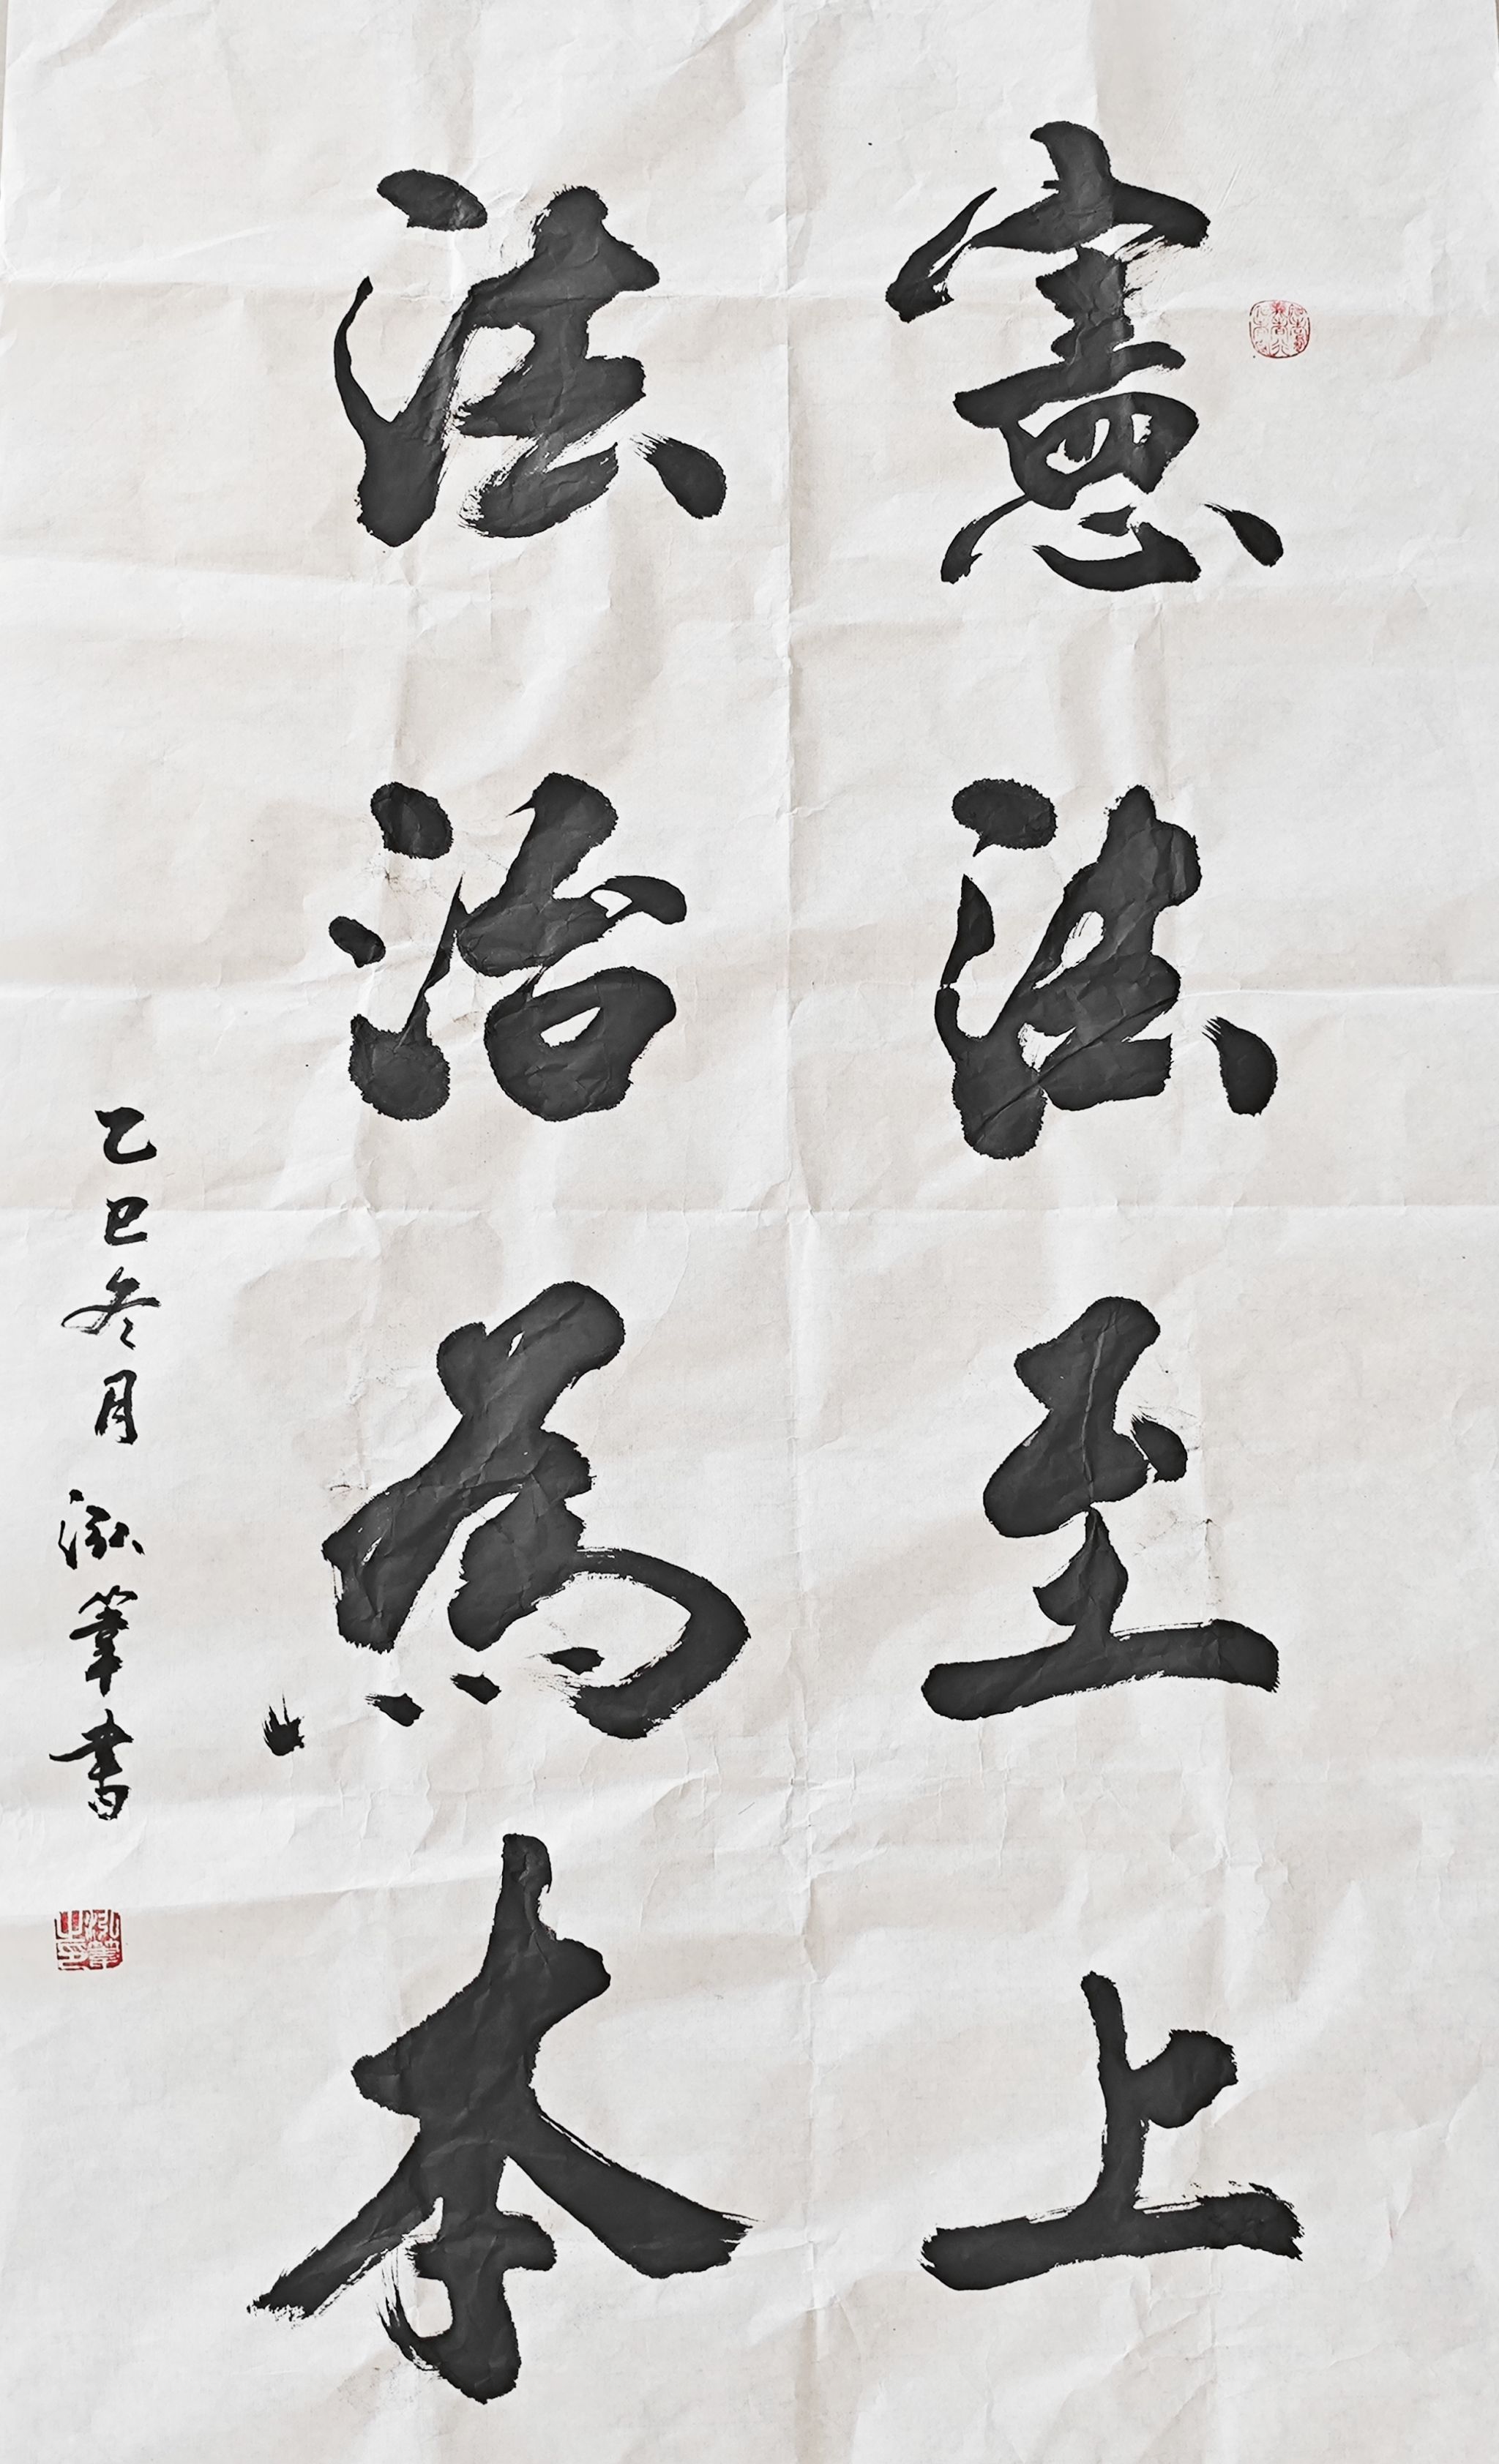 憲法至上
法治為本
乙巳冬月泓筆書